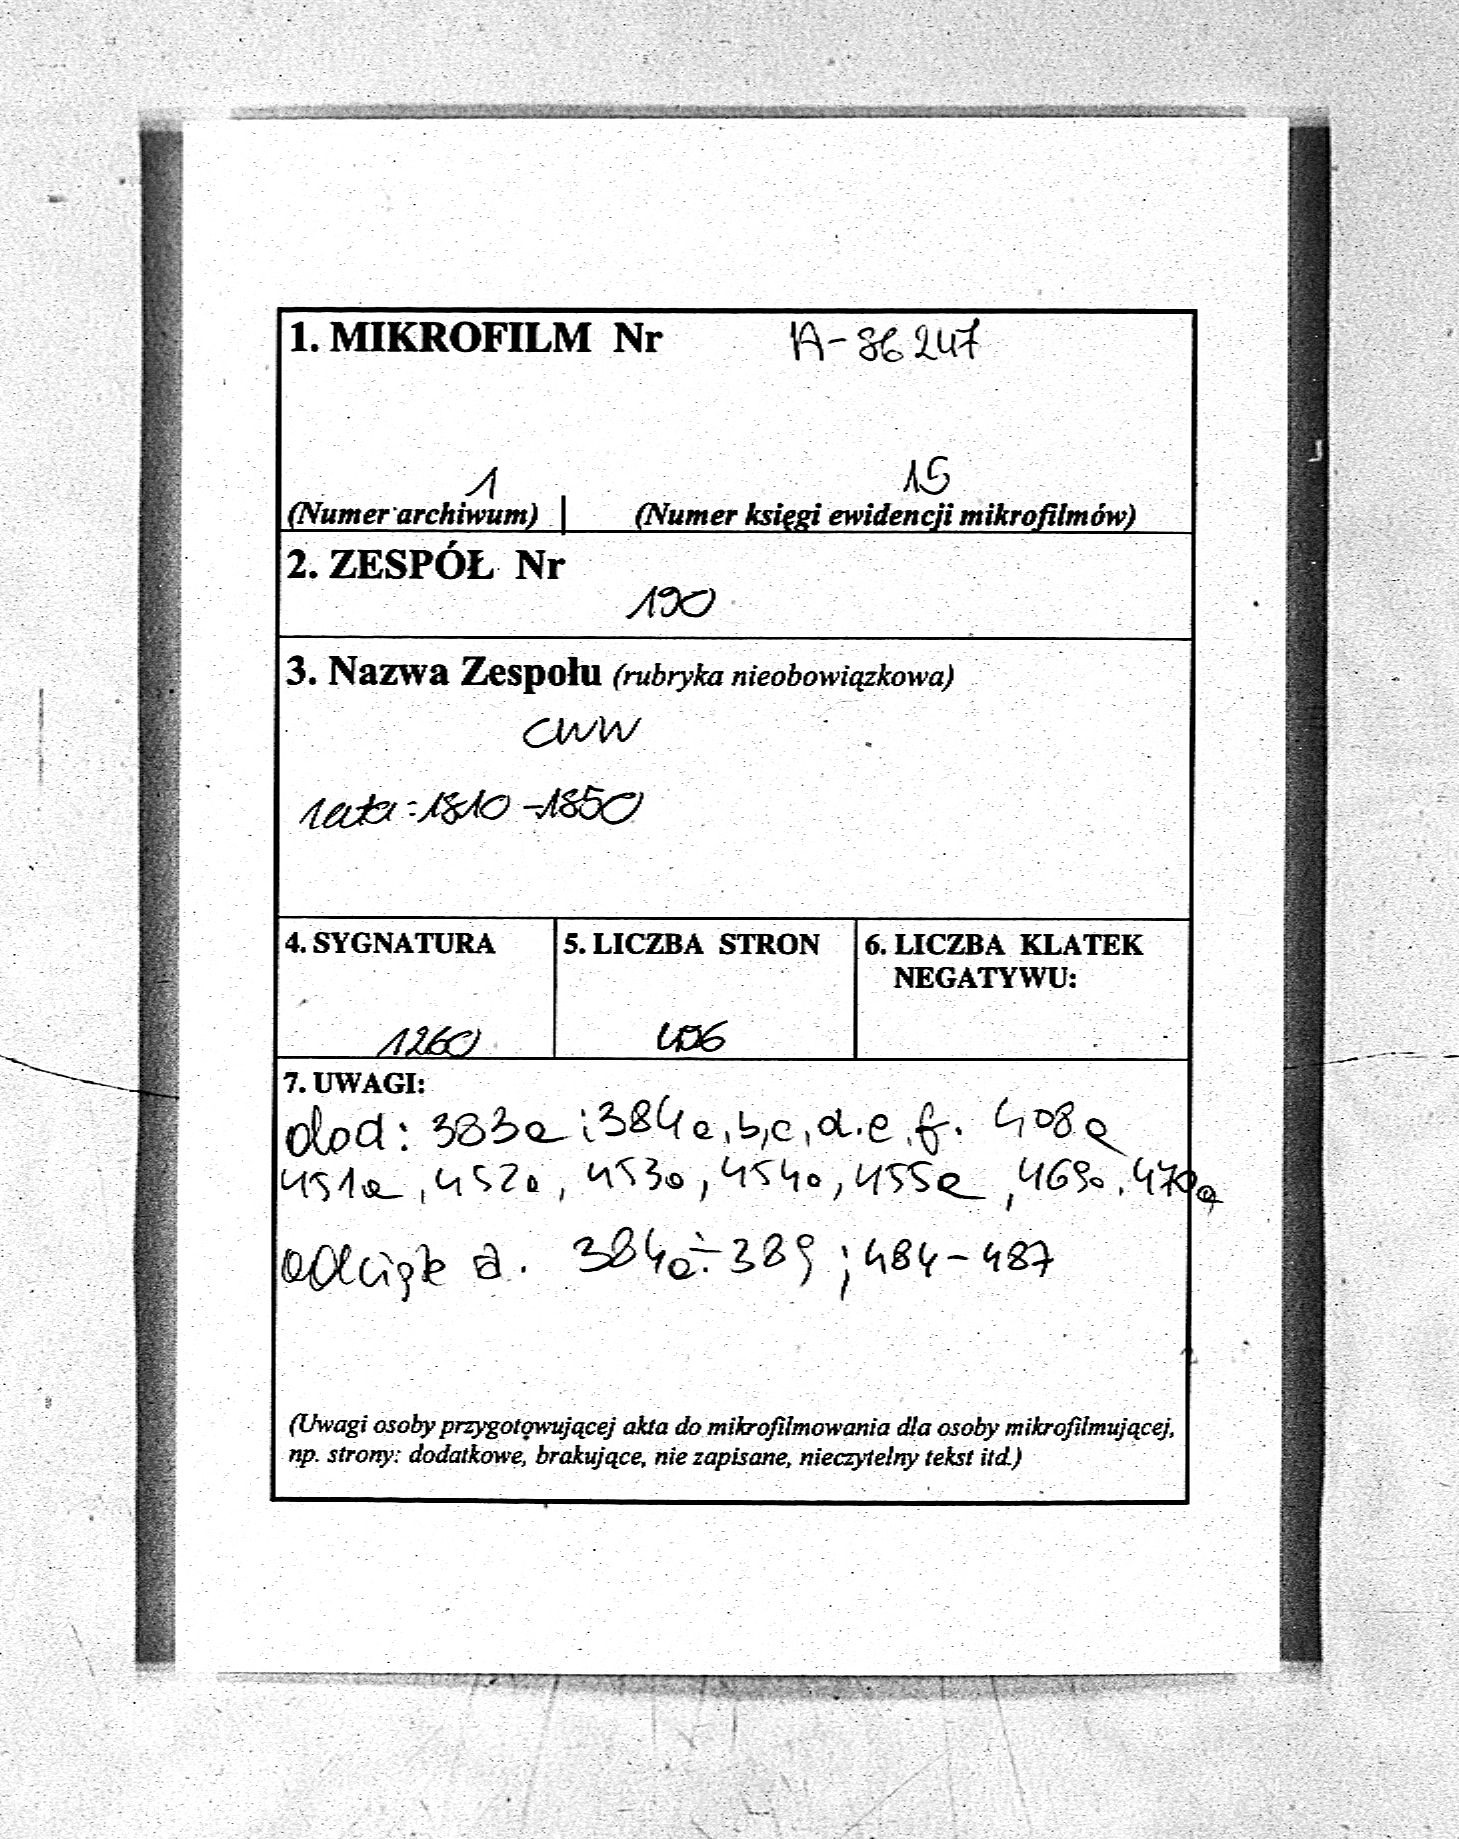 1. MIKROFILM Nr A-86247
1 15
(Numer archiwum) (Numer księgi ewidencji mikrofilmów)
2. ZESPÓŁ Nr
190
3. Nazwa Zespołu (rubryka nieobowiązkowa)
CWW
lata: 1810-1850
4. SYGNATURA 5. LICZBA STRON 6. LICZBA KLATEK
NEGATYWU:
1260
7. UWAGI:
dod: 383a; 384a, b, c, d. e. f. 408a
451a, 452a, 453a, 454a, 455a, 469a, 470a
384a÷389; 484-487
(Uwagi osoby przygotowującej akta do mikrofilmowania dla osoby mikrofilmującej,
np. strony: dodatkowe, brakujące, nie zapisane, nieczytelny tekst itd.)